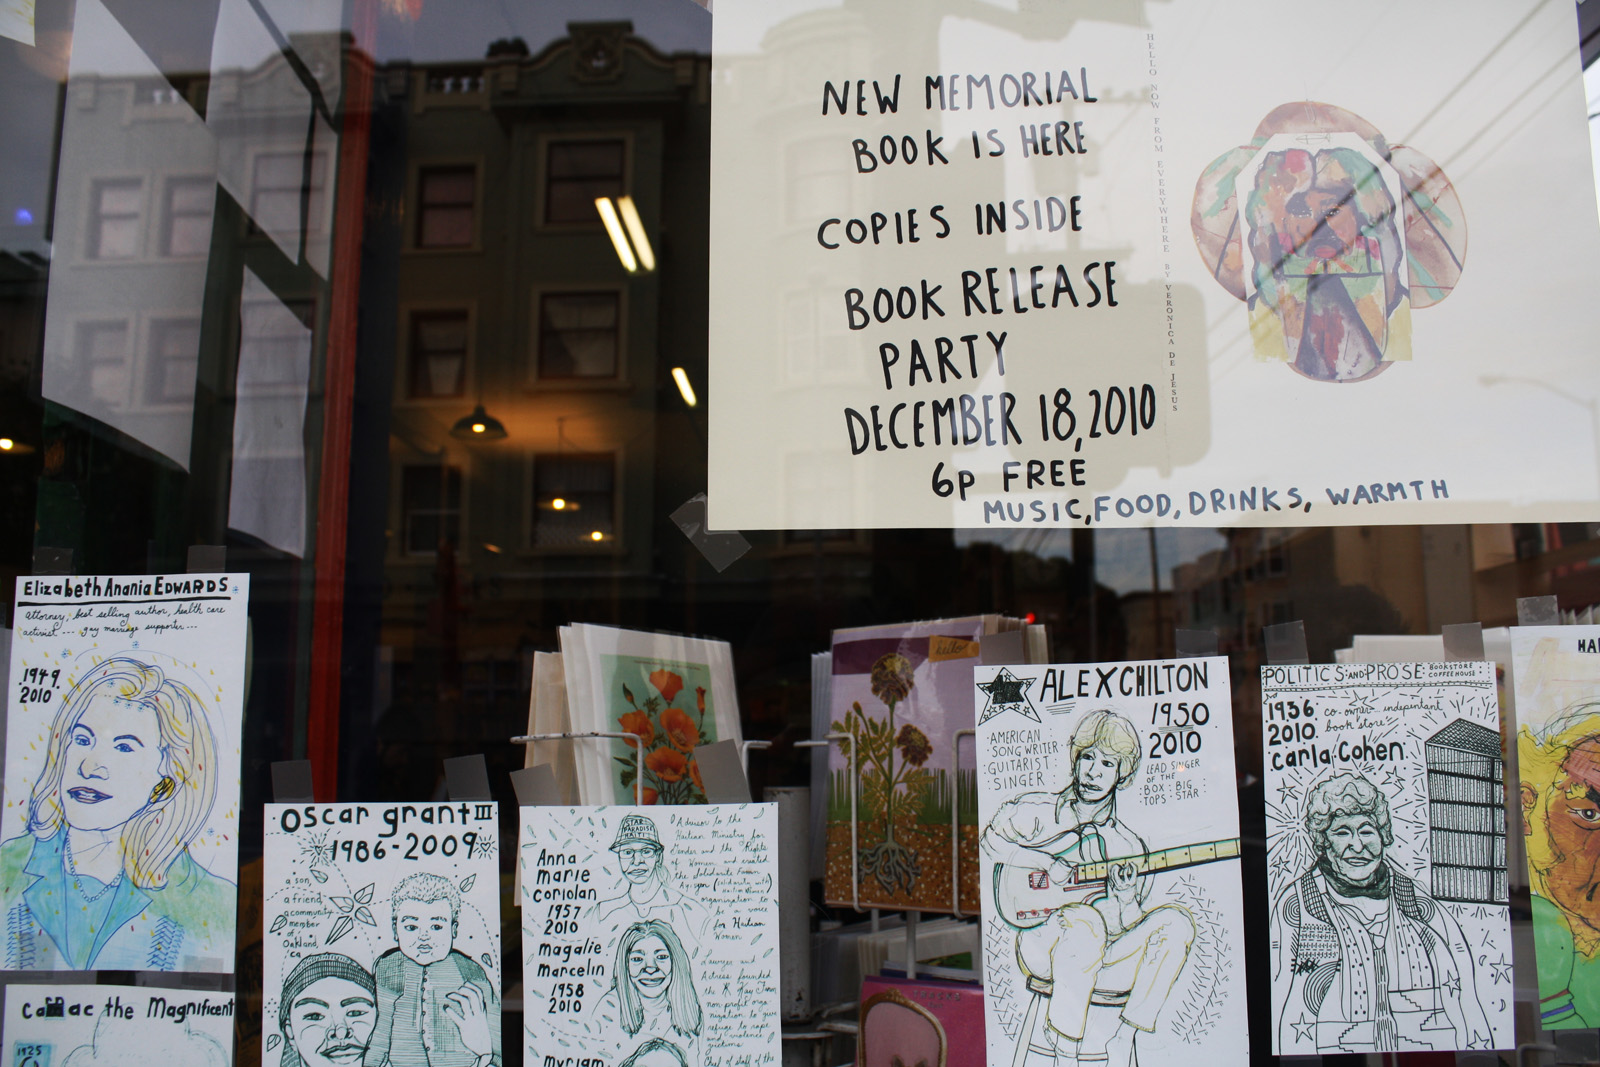 NEW MEMORIAL
BOOK IS HERE
COPIES INSIDE
BOOK RELEASE
PARTY
DECEMBER 18, 2010
6P FREE
MUSIC, FOOD, DRINKS, WARMTH
HELLO NOW FROM EVERYWHERE BY VERONICA DE JESUS
Elizabeth Anania EDWARDS
Attorney, best selling author, health care
activist --- gay marriage supporter ---
1949
2010
the Magnificent
1925
oscar grant III
1986-2009
a son,
a friend,
a community
member
of
Oakland,
ca
STAR
PARADISE
HAITI
Anna
marie
coriolan
1957
2010
magalie
marcelin
1958
2010
myriam
Advisor to the
Haitian Ministry for
Gender and the Rights
of Women and created
organization to
be a voice
for Haitian
Women
Lawyer and
Actress founded
non-profit orga
nization to give
refuge to rape
and violence
victims
Chief of staff of the
hello
ALEX CHILTON
1950
2010
AMERICAN
SONG WRITER
GUITARIST
SINGER
LEAD SINGER
OF THE
BOX : BIG
TOPS : STAR
POLITICS AND PROSE BOOKSTORE
COFFEEHOUSE
1936
2010
co-owner indepentant
book store
Carla Cohen
HA